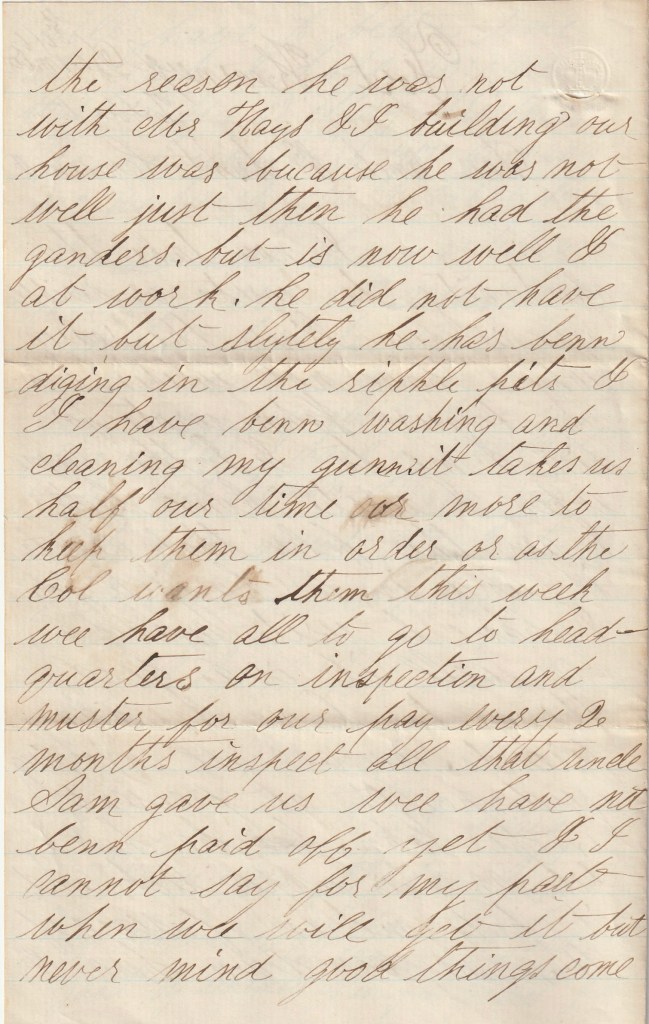 the reason he was not
with Mr Hays & I building our
house was because he was not
well just then he had the
ganders. but is now well &
at work. he did not have
it but slytely he has benn
diging in the riffle pits &
I have benn washing and
cleaning my gunn it takes us
half our time or more to
keep them in order or as the
Col wants them this week
wee have all to go to head-
quarters on inspection and
muster for our pay every 2
months inspect all that uncle
Sam gave us wee have not
benn paid off yet & I
cannot say for my part
when wee will get it but
never mind good things come